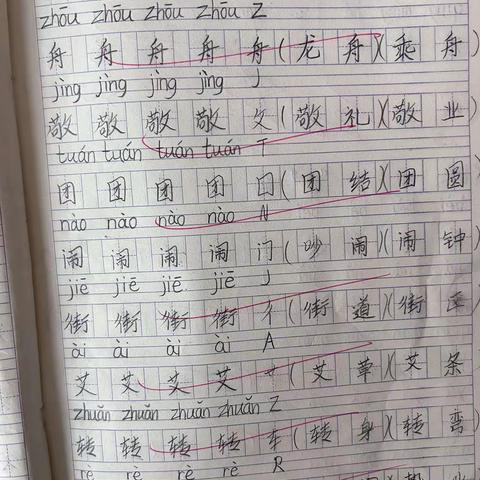 zhōu zhōu zhōu zhōu Z
舟 舟 舟 舟 舟(龙 舟)(乘 舟)
jìng jìng jìng jìng J
敬 敬 敬 敬 攵(敬 礼)(敬 业)
tuán tuán tuán tuán T
团 团 团 团 囗(团 结)(团 圆)
nào nào nào nào N
闹 闹 闹 闹 门(吵 闹)(闹 钟)
jiē jiē jiē jiē J
街 街 街 街 彳(街 道)(街
ài ài ài ài A
艾 艾 艾 艾 艹(艾 草)(艾 条)
zhuǎn zhuǎn zhuǎn zhuǎn Z
转 转 转 转 车(转 身)(转 弯)
rè rè rè rè R